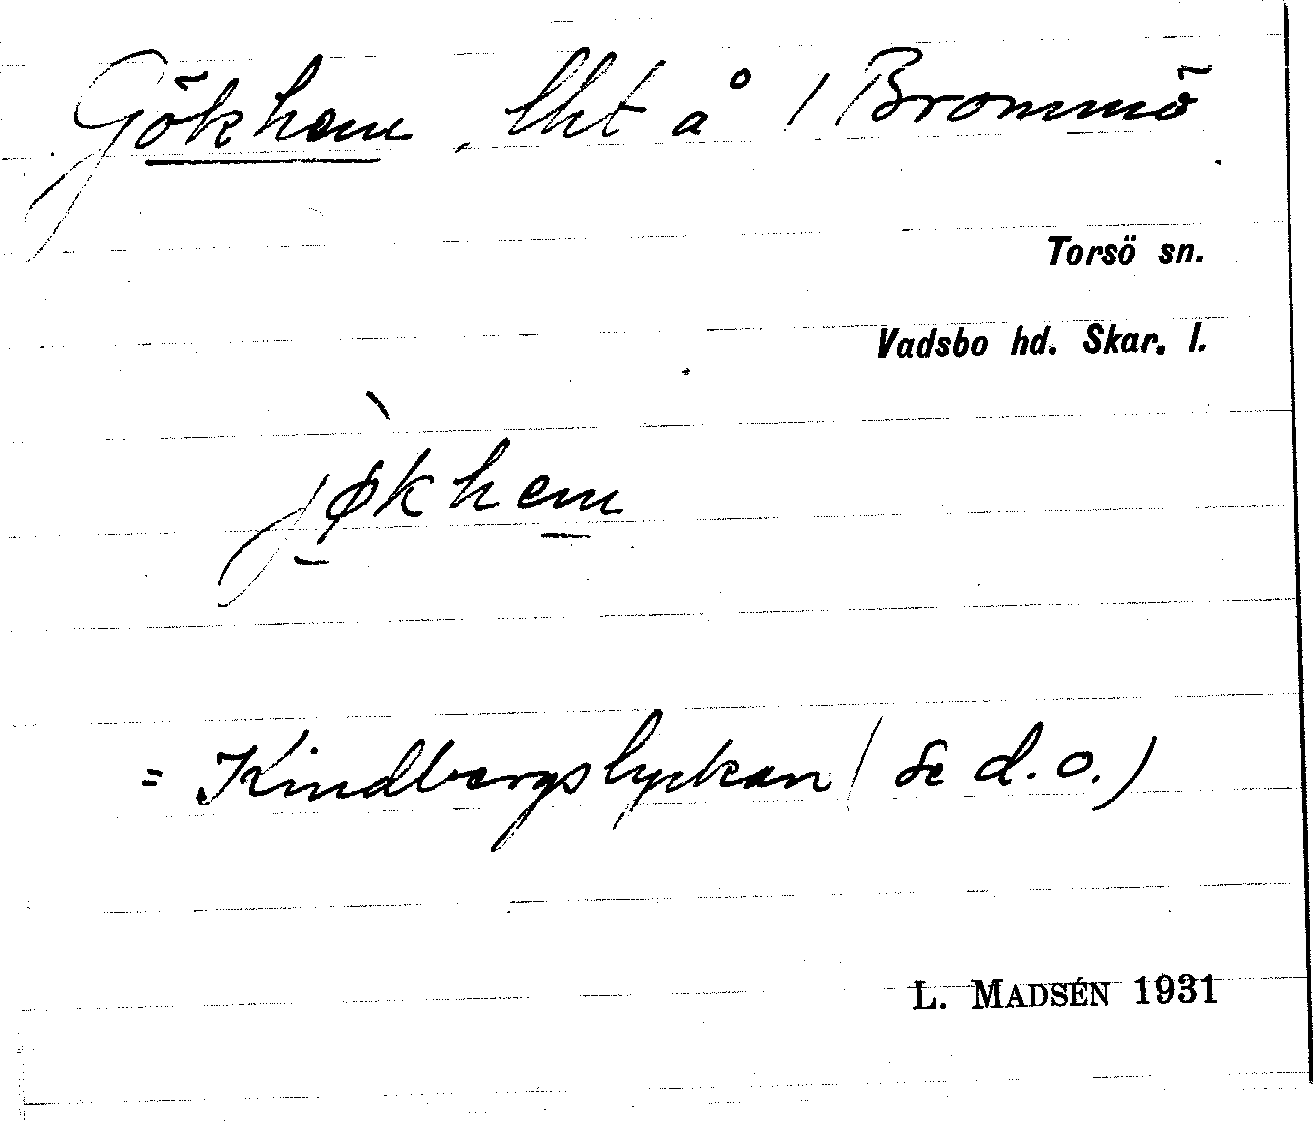 Gökhem, lht å 1 Brommö
Torsö sn.
Vadsbo hd. Skar. l.
jø̀khem
= Kindbergslyckan (se d.o.)
L. MADSÉN 1931